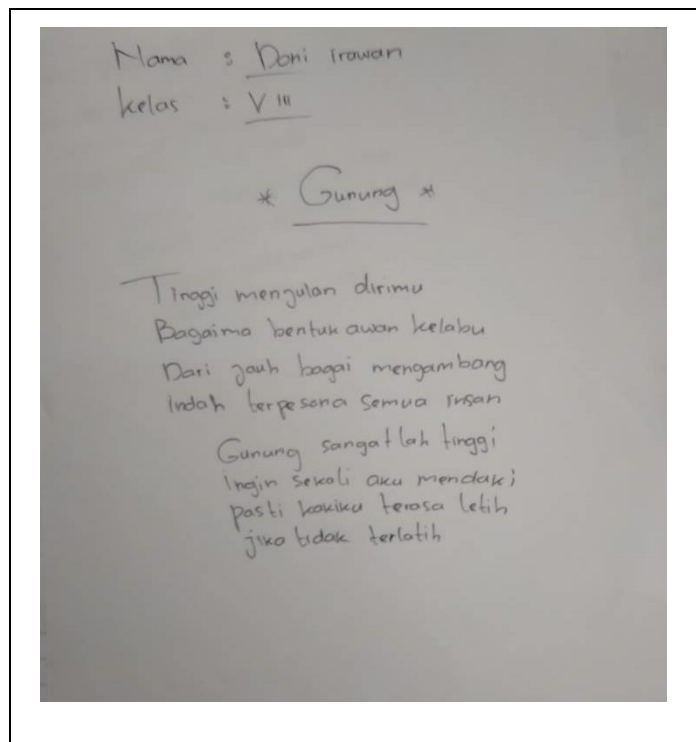 Nama : Doni irawan
kelas : VIII
* Gunung *
Tinggi mengulan dirimu
Bagaima bentuk awan kelabu
Dari jauh bagai mengambang
indah terpesona semua insan
Gunung sangatlah tinggi
ingin sekali aku mendaki
pasti kakiku terasa letih
jika tidak terlatih